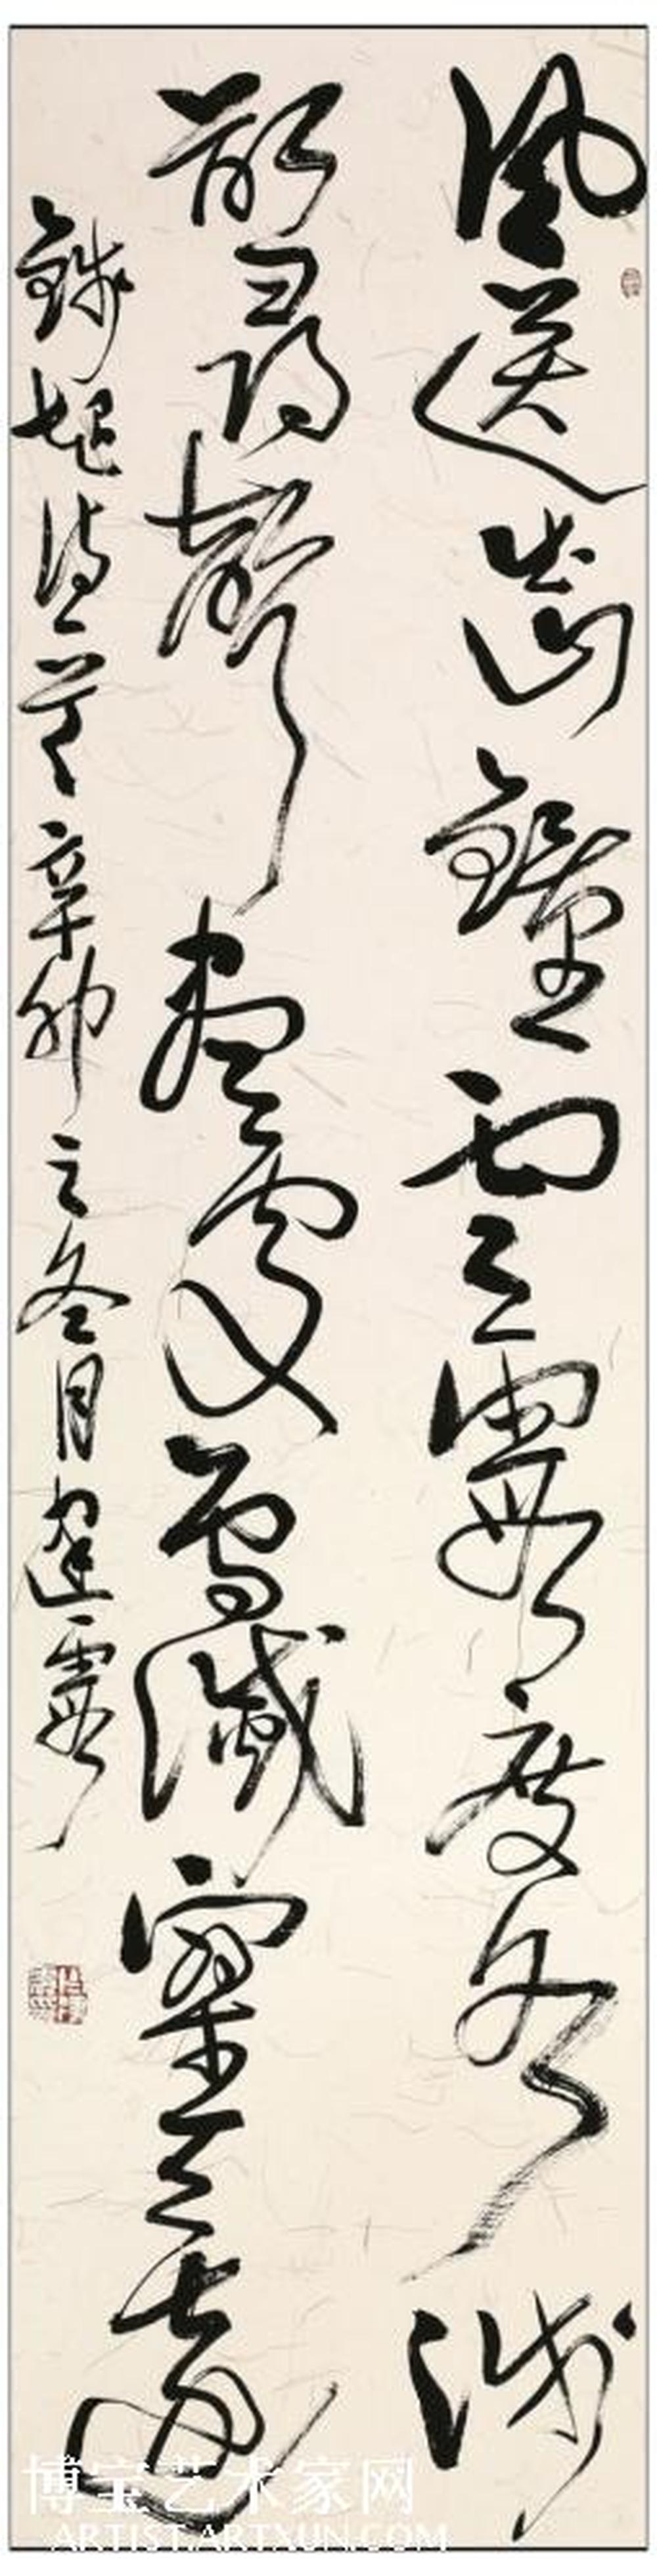 風送出山鐘雲霞度水淺
欲尋聲盡處鳥滅寥天遠
錢起詩一首辛卯之冬月建霞
博宝艺术家网
ARTIST.ARTXUN.COM